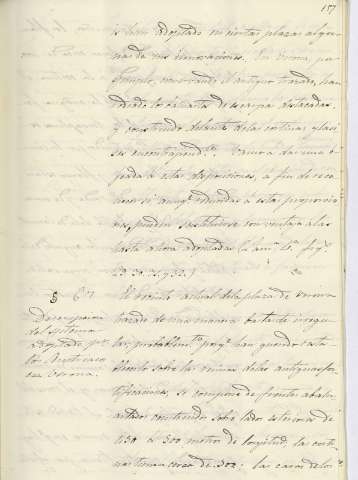 157
is han adoptado en ciertas plazas algu-
nas de sus innovaciones. En Verona, por
ejemplo, conservando el antiguo trazado, han
añadido los de escarpa destacadas
y construido delante de las cortinas
ses Vamos á dar una o-
jeada á estas disposiciones, á fin de reco-
nocer si aunq.e á esta
pueden sustituirse con ventaja á las
hasta ahora adoptadas (Lam.a 2.a fig.s
§ 6.o
Descripcion
del sistema
adoptado p.r
los Austriacos
en Verona.
El recinto actual de la plaza de Verona
trazado de una manera bastante irregu-
lar, probablem.te porq.e han querido esta-
blecerlo sobre las ruinas de las antiguas for-
tificaciones, se compone de frentes abalu-
artados construidos sobre lados exteriores de
450 á 500 metros de longitud, las corti-
nas tienen cerca de 300; las caras de los